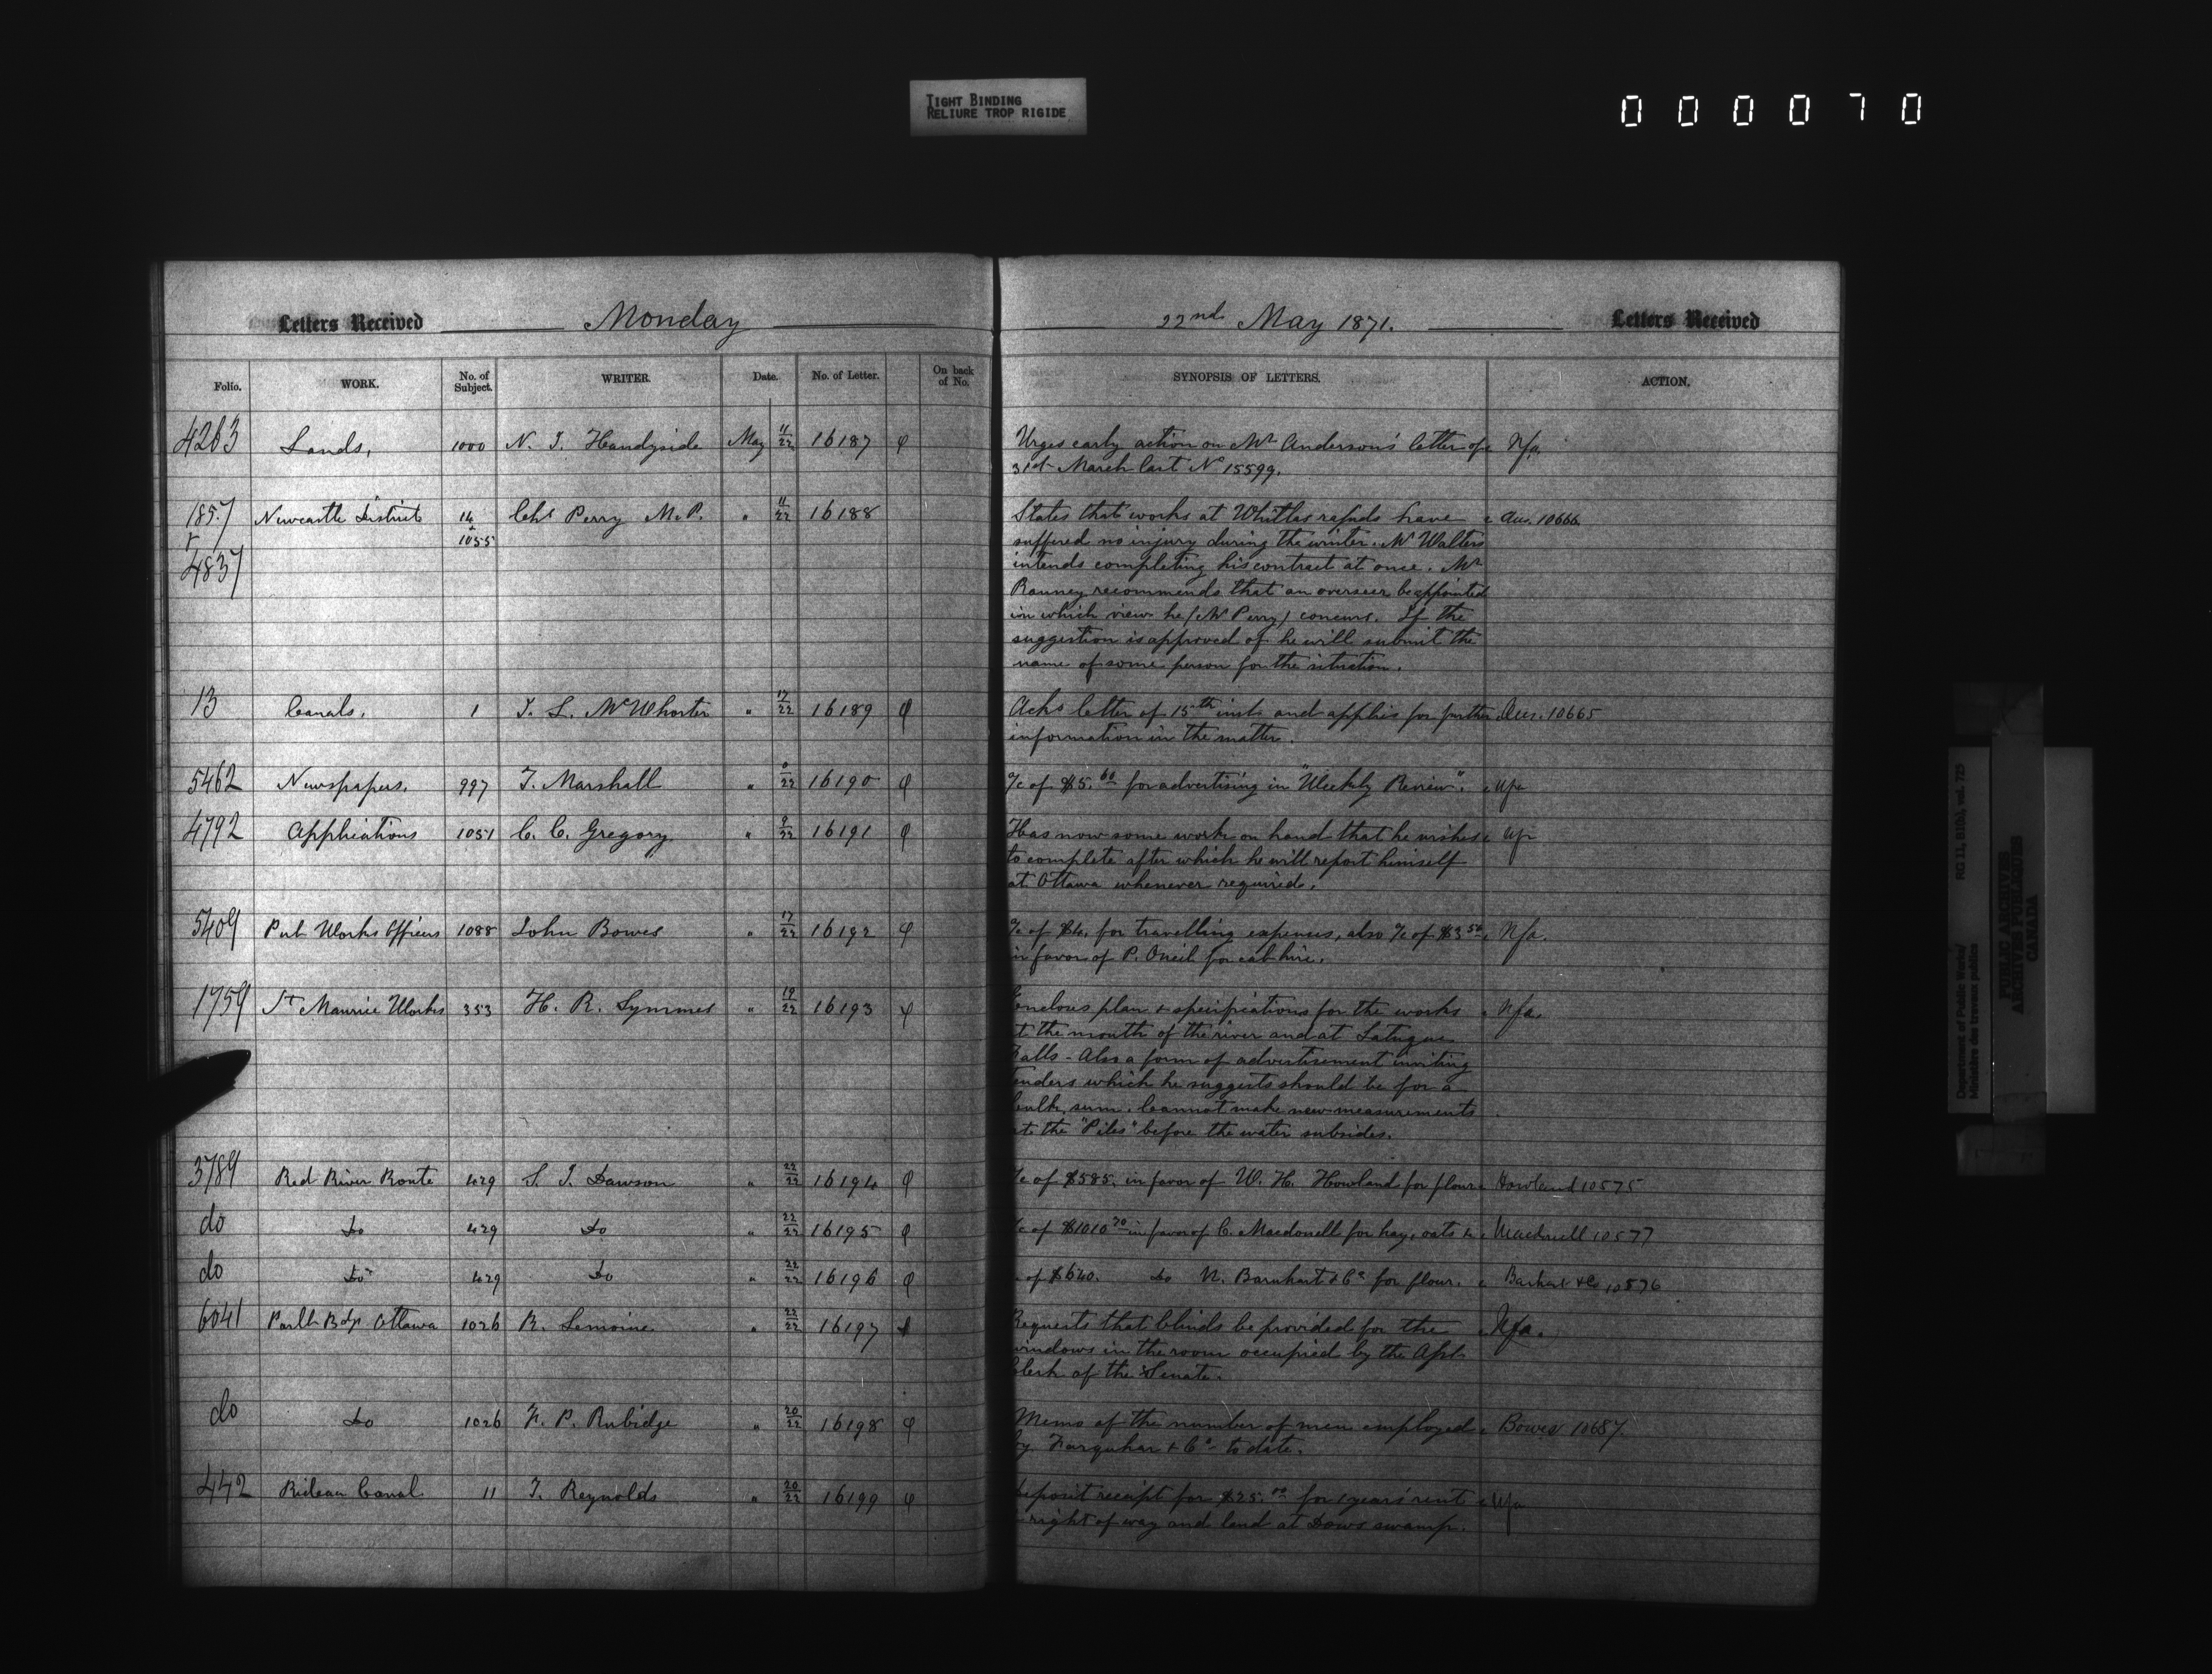 TIGHT BINDING
RELIURE TROP RIGIDE
000070
Letters Received Monday
22nd May 1871. Letters Received
Folio. WORK. No. of Subject. WRITER. Date. No. of Letter. On back of No. SYNOPSIS OF LETTERS. ACTION.
4263 Lands, 1000 N. J. Handyside May 11/22 16187 φ Urges early action on Mr Anderson's letter of Nfa.
31st March last No 15599.
1857 Newcastle District 14 Chs Perry M.P. " 11/22 16188 States that works at Whitlas rapids have Ans. 10666
& 1055 suffered no injury during the winter. Mr Walters
4837 intends completing his contract at once. Mr
Ranney recommends that an overseer be appointed
in which view he (Mr Perry) concurs. If the
suggestion is approved of he will submit the
name of some person for the situation.
13 Canals, 1 J. L. McWhorter " 17/22 16189 φ Acks letter of 15th inst. and applies for further Ans. 10665
information in the matter.
5462 Newspapers. 997 T. Marshall " 16190 φ a/c of $5.60 for advertising in "Weekly Review". Nfa
4792 Applications 1051 C. C. Gregory " 9/22 16191 φ Has now some work on hand that he wishes
to complete after which he will report himself
at Ottawa whenever required.
5409 Pub Works Officers 1088 John Bowes " 17/22 16192 φ a/c of $4. for travelling expenses, also a/c of $3.50 Nfa.
in favor of P. Oneil for cab hire.
1759 St Maurice Works 353 H. R. Symmes " 19/22 16193 φ Encloses plan & specifications for the works Nfa.
at the mouth of the river and at Latuque
Falls - Also a form of advertisement inviting
tenders which he suggests should be for a
bulk sum. Cannot make new measurements
at the "Piles" before the water subsides.
3789 Red River Route 429 S. J. Dawson " 22/22 16194 φ a/c of $585. in favor of W. H. Howland for flour. Howland 10575
do Do 429 Do " 22/22 16195 φ a/c of $1010.70 in favor of C. Macdonell for hay, oats &c. Macdonell 10577
do Do 429 Do " 22/22 16196 φ of $640. Do N. Barnhart & Co for flour. Barhart & Co 10576
6041 Parlt Bdgs. Ottawa 1026 R. Lemoine " 22/22 16197 Requests that blinds be provided for the Nfa.
windows in the room occupied by the Asst
Clerk of the Senate.
do Do 1026 F. P. Rubidge " 20/22 16198 φ Memo of the number of men employed Bowes 10687.
by Farquhar & Co to date.
442 Rideau Canal 11 T. Reynolds " 20/22 16199 φ Deposit receipt for $25.00 for 1 years' rent Nfa
right of way and land at Dows swamp.
Department of Public Works/ RG 11, B1(b), vol. 725
Ministère des travaux publics
PUBLIC ARCHIVES
ARCHIVES PUBLIQUES
CANADA